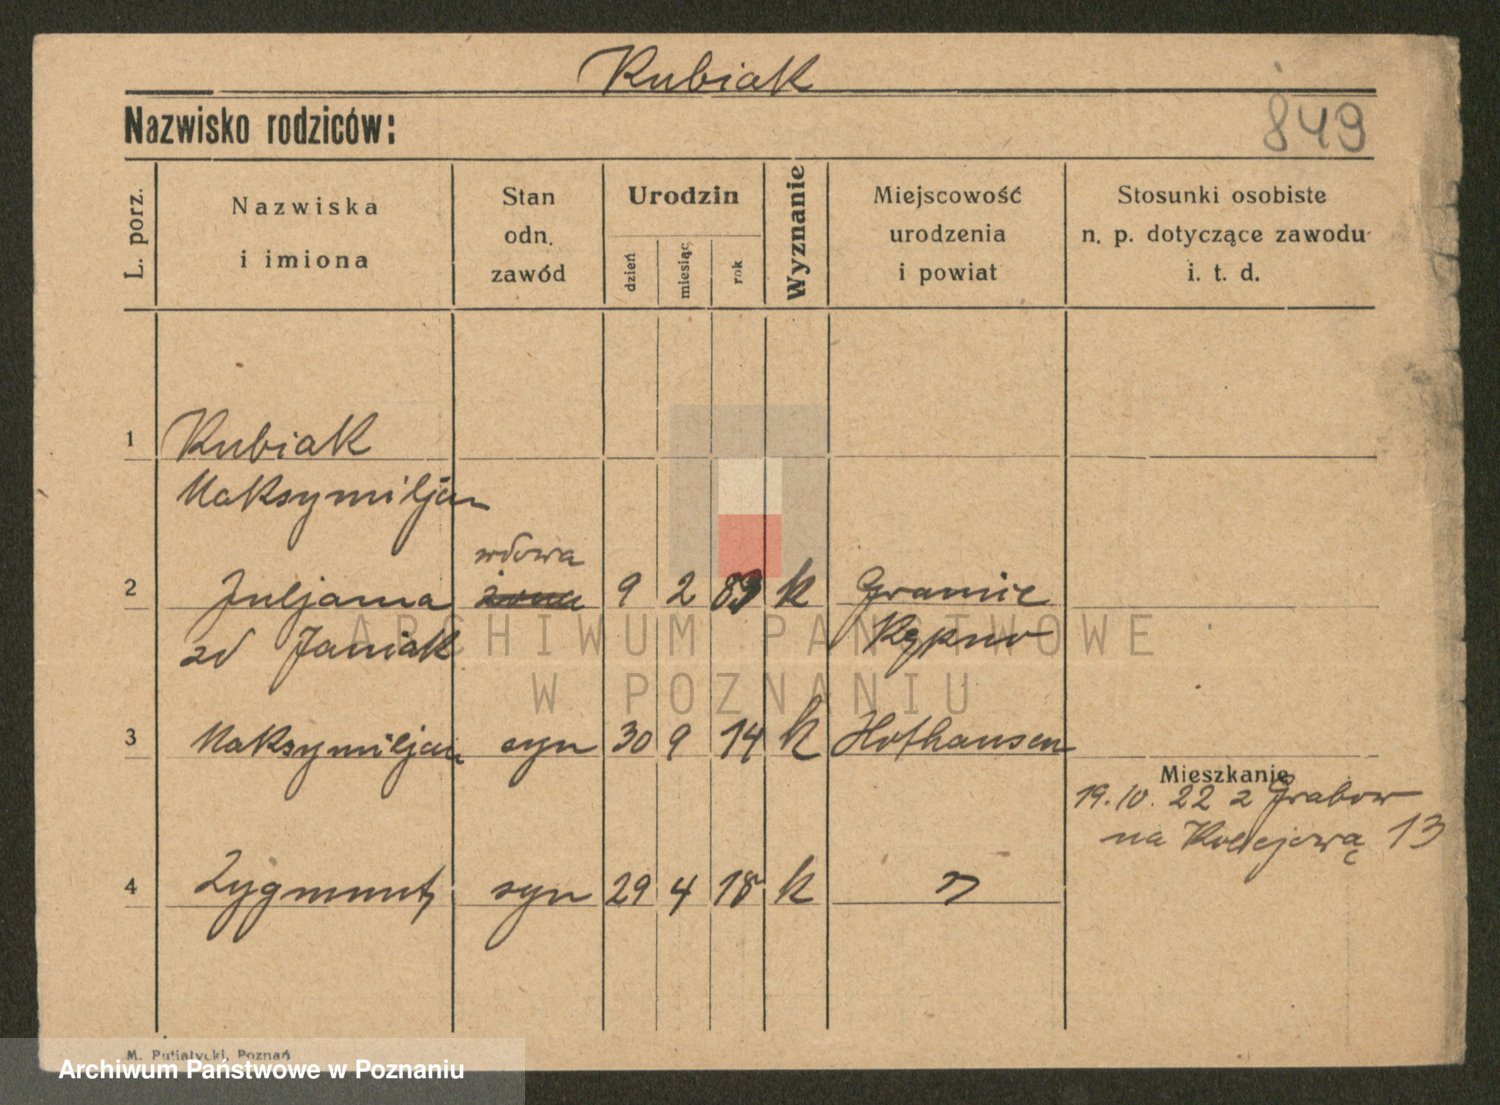 Kubiak
Nazwisko rodziców:
849
L. porz.
Nazwiska
i imiona
Stan
odn.
zawód
Urodzin
dzień
miesiąc
rok
Wyznanie
Miejscowość
urodzenia
i powiat
Stosunki osobiste
n. p. dotyczące zawodu
i. t. d.
1 Kubiak
Maksymiljan
wdowa
2 Juljanna żona 9 2 83 k
zd Janiak Kępno
3 Maksymiljan syn 30 9 14 k Hofhausen
Mieszkanie
19. 10. 22 z Grabow
na Kolejową 13
4 Zygmunt syn 29 4 18 k "
ARCHIWUM PAŃSTWOWE
W POZNANIU
M. Putiatycki, Poznań
Archiwum Państwowe w Poznaniu